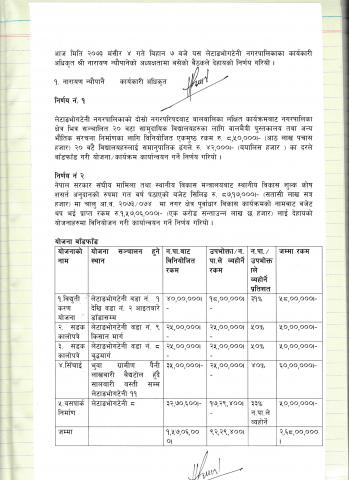 आज मिति २०७३ मंसीर ४ गते बिहान ७ बजे यस लेटाङभोगटेनी नगरपालिकाका कार्यकारी
अधिकृत श्री नारायण न्यौपानेको अध्यक्षतामा बसेको बैठकले देहायको निर्णय गरियो ।
१. नारायण न्यौपाने कार्यकारी अधिकृत
निर्णय नं. १
लेटाङभोगटेनी नगरपालिकाको दोस्रो नगरपरिषदबाट बालबालिका लक्षित कार्यक्रमबाट नगरपालिका
क्षेत्र भित्र सञ्चालित २० वटा सामुदायिक विद्यालयहरुका लागि बालमैत्री पुस्तकालय तथा अन्य
भौतिक संरचना निर्माणका लागि विनियोजित एकमुष्ठ रकम रु ८,५०,०००/- (आठ लाख पचास
हजार) २० वटै विद्यालयहरुलाई समानुपातिक ढंगले रु. ४२,०००/- (बयालिस हजार ) का दरले
बाँडफाँड गरी योजना/कार्यक्रम कार्यान्वयन गर्ने निर्णय गरियो ।
निर्णय नं २
नेपाल सरकार संघीय मामिला तथा स्थानीय विकास मन्त्रालयबाट स्थानीय विकास शुल्क कोष
शसर्त अनुदानको रुपमा गत वर्ष पठाएको बजेट सिलिङ रु. ८७,१७,०००/- (सतासी लाख सत्र
हजार) मा चालु आ.व. २०७३/०७४ मा नगर क्षेत्र पूर्वाधार विकास कार्यक्रमको नामबाट बजेट
थप भई प्राप्त रकम रु.१,५७,०६,०००/- (एक करोड सन्ताउन्न लाख छ हजार) लाई देहायको
योजनाहरुमा विनियोजन गरी कार्यान्वयन गर्ने निर्णय गरियो ।
योजना बाँडफाँड
योजनाको नाम योजना सञ्चालन हुने स्थान न.पा.बाट विनियोजित रकम उपभोक्ता/न.पा.ले व्यहोर्ने रकम न.पा./उपभोक्ताले व्यहोर्ने प्रतिशत जम्मा रकम
१.विद्युतीकरण योजना लेटाङभोगटेनी वडा नं. १ देखि वडा नं. २ आइतबारे डाँडासम्म ४०,००,०००/- १८,००,०००/- ३१% ५८,००,०००/-
२. सडक कालोपत्रे लेटाङभोगटेनी वडा नं. ९ किसान मार्ग २५,००,०००/- २५,००,०००/- ५०% ५०,००,०००/-
३. सडक कालोपत्रे लेटाङभोगटेनी वडा नं. ८ बुद्धमार्ग २५,००,०००/- २५,००,०००/- ५०% ५०,००,०००/-
४.सिंचाई भुवा ग्रामीण पैनी लाखबारी बैद्यटोल हुँदै सालबारी बस्ती सम्म लेटाङभोगटेनी ११ ३५,००,०००/- २५,००,०००/- ४०% ६०,००,०००/-
५.बसपार्क निर्माण लेटाङभोगटेनी ८ ३२,७०,६००/- १७,२९,४००/- ३३% न.पा.ले व्यहोर्ने ५०,००,०००/-
जम्मा १,५७,०६,०००/- ९२,२९,४००/- २,६८,००,०००/-